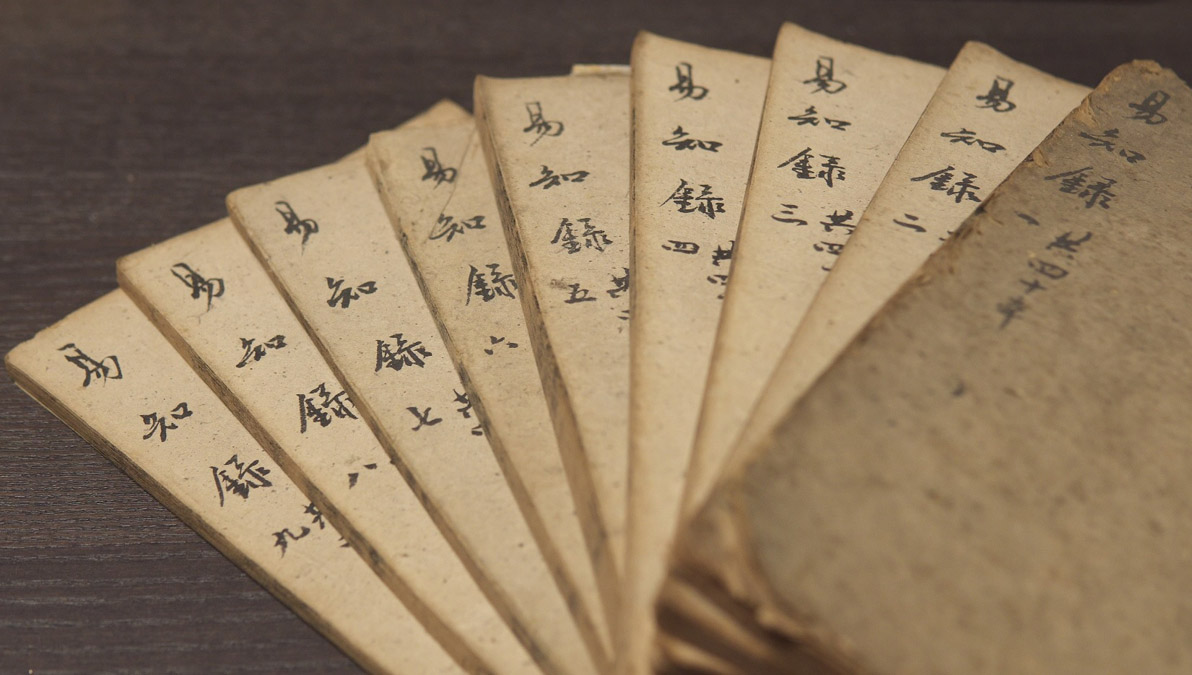 易知錄
一
共四十本
易知錄
二
易知錄
三
共四
易知錄
四
共四
易知錄
五
共
易知錄
六
易知錄
七
共
易知錄
八
易知錄
九
共